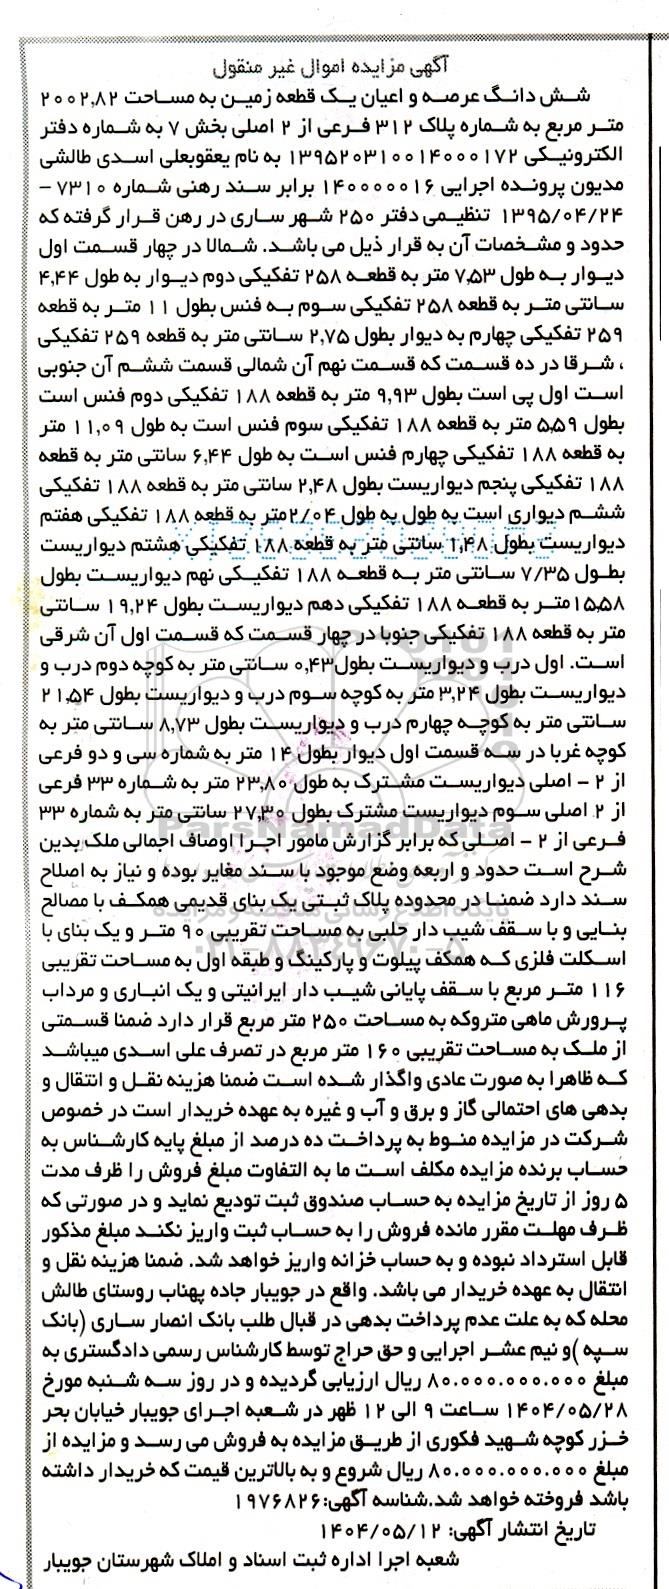 آگهی مزایده اموال غیر منقول
شش دانگ عرصه و اعیان یک قطعه زمین به مساحت ۲۰۰۲,۸۲
متر مربع به شماره پلاک ۳۱۲ فرعی از ۲ اصلی بخش ۷ به شماره دفتر
الکترونیکی ۱۳۹۵۲۰۳۱۰۰۱۴۰۰۰۱۷۲ به نام یعقوبعلی اسدی طالشی
مدیون پرونده اجرایی ۱۴۰۰۰۰۰۱۶ برابر سند رهنی شماره ۷۳۱۰ –
۱۳۹۵/۰۴/۲۴ تنظیمی دفتر ۲۵۰ شهر ساری در رهن قرار گرفته که
حدود و مشخصات آن به قرار ذیل می باشد. شمالا در چهار قسمت اول
دیوار به طول ۷,۵۳ متر به قطعه ۲۵۸ تفکیکی دوم دیوار به طول ۴,۴۴
سانتی متر به قطعه ۲۵۸ تفکیکی سوم به فنس بطول ۱۱ متر به قطعه
۲۵۹ تفکیکی چهارم به دیوار بطول ۲,۷۵ سانتی متر به قطعه ۲۵۹ تفکیکی
، شرقا در ده قسمت که قسمت نهم آن شمالی قسمت ششم آن جنوبی
است اول پی است بطول ۹,۹۳ متر به قطعه ۱۸۸ تفکیکی دوم فنس است
بطول ۵,۵۹ متر به قطعه ۱۸۸ تفکیکی سوم فنس است به طول ۱۱,۰۹ متر
به قطعه ۱۸۸ تفکیکی چهارم فنس است به طول ۶,۴۴ سانتی متر به قطعه
۱۸۸ تفکیکی پنجم دیواریست بطول ۲,۴۸ سانتی متر به قطعه ۱۸۸ تفکیکی
ششم دیواری است به طول به طول ۲/۰۴متر به قطعه ۱۸۸ تفکیکی هفتم
دیواریست بطول ۱,۴۸ سانتی متر به قطعه ۱۸۸ تفکیکی هشتم دیواریست
بطول ۷/۳۵ سانتی متر به قطعه ۱۸۸ تفکیکی نهم دیواریست بطول
۱۵,۵۸متر به قطعه ۱۸۸ تفکیکی دهم دیواریست بطول ۱۹,۲۴ سانتی
متر به قطعه ۱۸۸ تفکیکی جنوبا در چهار قسمت که قسمت اول آن شرقی
است. اول درب و دیواریست بطول۰,۴۳ سانتی متر به کوچه دوم درب و
دیواریست بطول ۳,۲۴ متر به کوچه سوم درب و دیواریست بطول ۲۱,۵۴
سانتی متر به کوچه چهارم درب و دیواریست بطول ۸,۷۳ سانتی متر به
کوچه غربا در سه قسمت اول دیوار بطول ۱۴ متر به شماره سی و دو فرعی
از ۲ – اصلی دیواریست مشترک به طول ۲۳,۸۰ متر به شماره ۳۳ فرعی
از ۲ اصلی سوم دیواریست مشترک بطول ۲۷,۳۰ سانتی متر به شماره ۳۳
فرعی از ۲ – اصلی که برابر گزارش مامور اجرا اوصاف اجمالی ملک بدین
شرح است حدود و اربعه وضع موجود با سند مغایر بوده و نیاز به اصلاح
سند دارد ضمنا در محدوده پلاک ثبتی یک بنای قدیمی همکف با مصالح
بنایی و با سقف شیب دار حلبی به مساحت تقریبی ۹۰ متر و یک بنای با
اسکلت فلزی که همکف پیلوت و پارکینگ و طبقه اول به مساحت تقریبی
۱۱۶ متر مربع با سقف پایانی شیب دار ایرانیتی و یک انباری و مرداب
پرورش ماهی متروکه به مساحت ۲۵۰ متر مربع قرار دارد ضمنا قسمتی
از ملک به مساحت تقریبی ۱۶۰ متر مربع در تصرف علی اسدی میباشد
که ظاهرا به صورت عادی واگذار شده است ضمنا هزینه نقل و انتقال و
بدهی های احتمالی گاز و برق و آب و غیره به عهده خریدار است در خصوص
شرکت در مزایده منوط به پرداخت ده درصد از مبلغ پایه کارشناس به
حساب برنده مزایده مکلف است ما به التفاوت مبلغ فروش را ظرف مدت
۵ روز از تاریخ مزایده به حساب صندوق ثبت تودیع نماید و در صورتی که
ظرف مهلت مقرر مانده فروش را به حساب ثبت واریز نکند مبلغ مذکور
قابل استرداد نبوده و به حساب خزانه واریز خواهد شد. ضمنا هزینه نقل و
انتقال به عهده خریدار می باشد. واقع در جویبار جاده پهناب روستای طالش
محله که به علت عدم پرداخت بدهی در قبال طلب بانک انصار ساری (بانک
سپه )و نیم عشر اجرایی و حق حراج توسط کارشناس رسمی دادگستری به
مبلغ ۸۰.۰۰۰.۰۰۰.۰۰۰ ریال ارزیابی گردیده و در روز سه شنبه مورخ
۱۴۰۴/۰۵/۲۸ ساعت ۹ الی ۱۲ ظهر در شعبه اجرای جویبار خیابان بحر
خزر کوچه شهید فکوری از طریق مزایده به فروش می رسد و مزایده از
مبلغ ۸۰.۰۰۰.۰۰۰.۰۰۰ ریال شروع و به بالاترین قیمت که خریدار داشته
باشد فروخته خواهد شد.شناسه آگهی:۱۹۷۶۸۲۶
تاریخ انتشار آگهی: ۱۴۰۴/۰۵/۱۲
شعبه اجرا اداره ثبت اسناد و املاک شهرستان جویبار
ParsNamadData
پایگاه اطلاع رسانی مناقصه و مزایده
۰۲۱-۸۸۳۴۹۶۷۰-۵